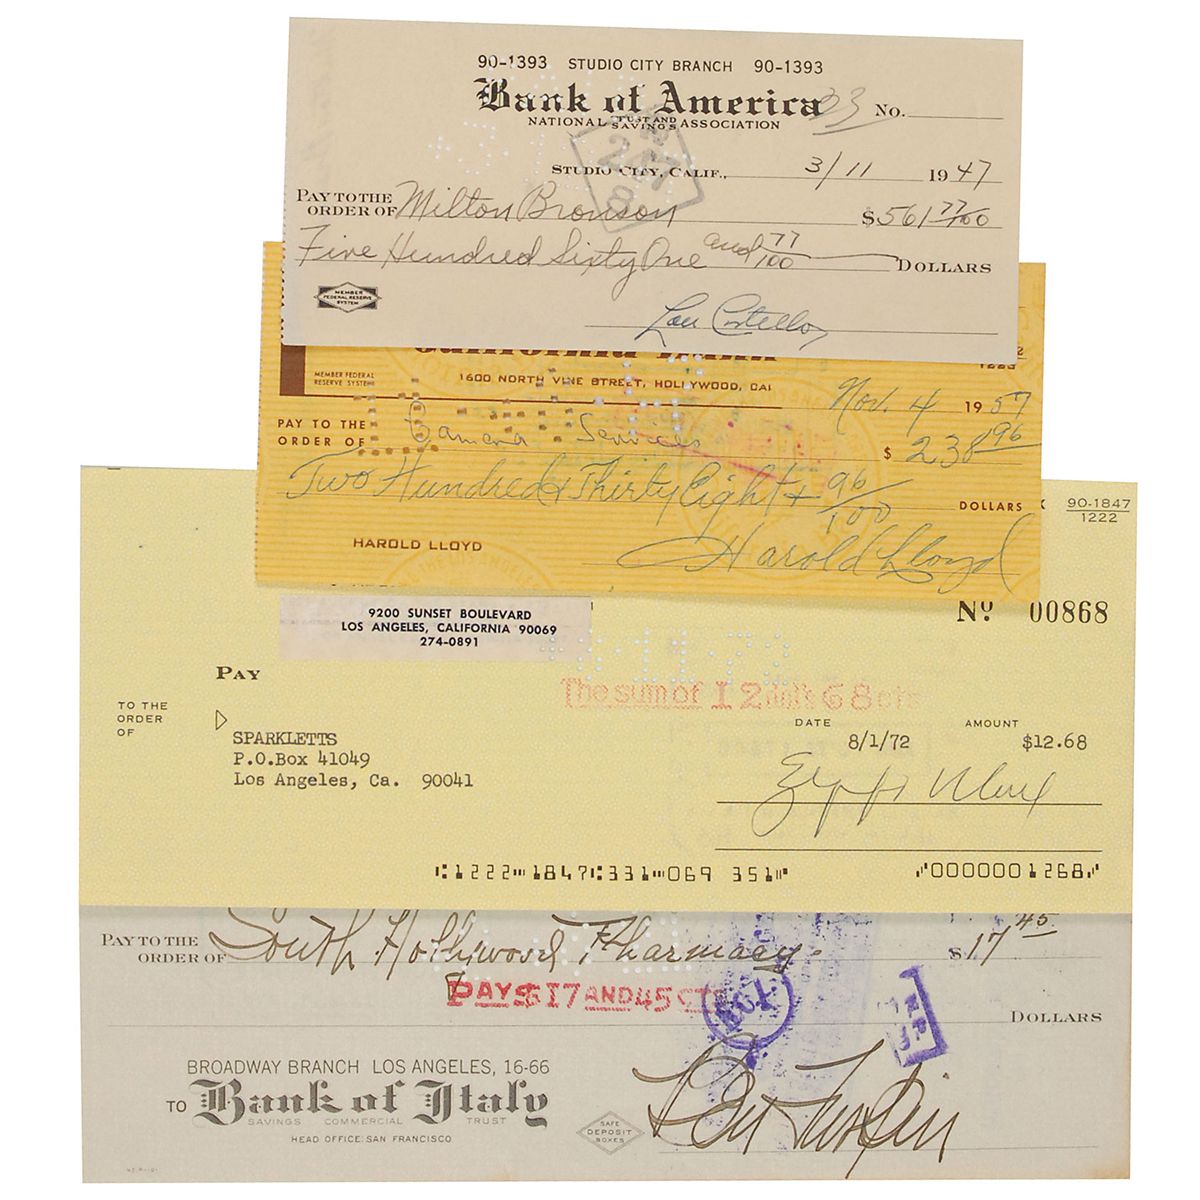 90-1393 STUDIO CITY BRANCH 90-1393
Bank of America
33 No.
NATIONAL TRUST AND SAVINGS ASSOCIATION
247
8
STUDIO CITY, CALIF., 3/11 1947
PAY TO THE ORDER OF Milton Bronson $561 77/100
Five Hundred Sixty One and 77/100 DOLLARS
MEMBER FEDERAL RESERVE SYSTEM
Lou Costello
California Bank
MEMBER FEDERAL RESERVE SYSTEM
1600 NORTH VINE STREET, HOLLYWOOD, CAL
Nov. 4 1957
PAY TO THE ORDER OF Camera Services $ 238 96
Two Hundred & Thirty Eight + 96/100 DOLLARS
HAROLD LLOYD Harold Lloyd
90-1847
1222
9200 SUNSET BOULEVARD
LOS ANGELES, CALIFORNIA 90069
274-0891
Nº 00868
PAY
The sum of 12 dol's 68 cts
TO THE ORDER OF
DATE AMOUNT
SPARKLETTS 8/1/72 $12.68
P.O.Box 41049
Los Angeles, Ca. 90041
Zeppo Marx
⑆1222⑉1847⑆331⑉069 351⑈ ⑈0000001268⑈
PAY TO THE ORDER OF South Hollywood Pharmacy. $17 45
PAY $17 AND 45 CTS
DOLLARS
BROADWAY BRANCH LOS ANGELES, 16-66
TO Bank of Italy
SAVINGS COMMERCIAL TRUST
HEAD OFFICE: SAN FRANCISCO
SAFE DEPOSIT BOXES
Ben Turpin